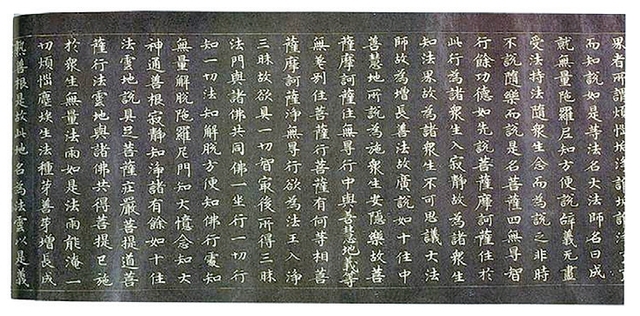 界者所謂煩惱
而知說如是等法名大法師名曰成
就無量陁羅尼知方便說辞義无盡
受法持法隨衆生念而為說之非時
不說隨樂而說是名菩薩四無㝵智
行餘功德如先說菩薩摩訶薩住於
此行為諸衆生入寂靜故為諸衆生
知法界故為諸衆生不可思議大法
師故為增長善法故廣說如十住中
善慧地所說為施衆生安隱樂故善
薩摩訶薩住無㝵行中與善慧地義等
無差別住菩薩行菩薩有何等相善
薩摩訶薩淨無㝵行欲為法王入淨
三昧故欲具一切智最後所得三昧
法門與諸佛共同佛一坐行一切行
知一切法知解脫方便知佛行處知
無量解脫陁羅尼門知大憶念知大
神通善根寂靜知淨諸有餘如十住
法雲地說具足菩薩庄嚴菩提道善
薩行法雲地與諸佛共得菩提已施
於衆生無量法雨如是法雨能淹一
切煩惱塵埃生法種芽善芽增長成
熟善根是故此地名為法雲以是義